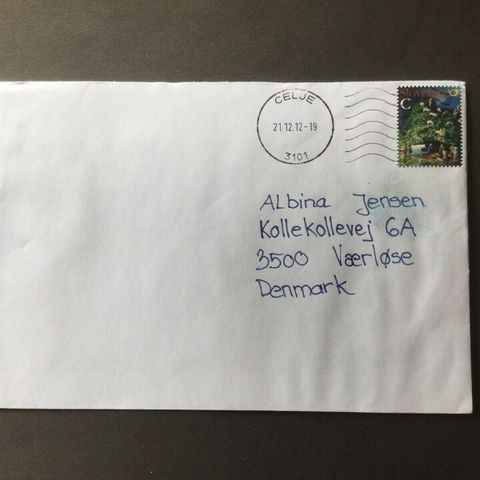 CELJE
21.12.12-19
3101
C
Albina Jensen
Kollekollevej 6A
3500 Værløse
Denmark